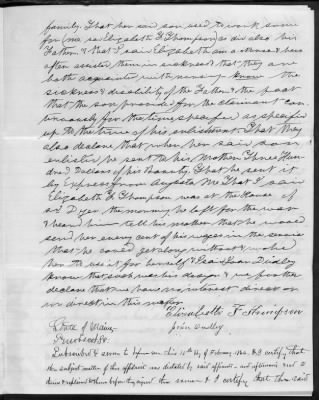 family. That her said son used to work some
for me said Elizabeth F Thompson as did also his
Father & that I said Elizabeth am a Nurse & have
often assisted them in sickness that they are
both acquainted with nursing know the
sickness & disability of the Father & the fact
that the son provided for the claimant con
tinuously for the time specified as specified
up to the time of his enlistment. That they
also declare that when her said son
enlisted he sent to his Mother Three Hun
dred Dollars of his Bounty. That he sent it
by Express from Augusta Me That I said
Elizabeth F Thompson was at the House of
sd Dyer the morning he left for the war
& heard him tell his mother that he would
send her every cent of his wages in the service
that he could get along without & wished
her to use it for herself & Geo
know that such was his design & we further
declare that we have no interest direct or
in direct in this matter
Elizabeth F Thompson
John
State of Maine
ss.
Subscribed & sworn to before me this 12th day of February & I certify that
the subject matter of this affidavit was dictated by said affiants and afterwards read to
them & explained to them before they signed the same & I certify that the said